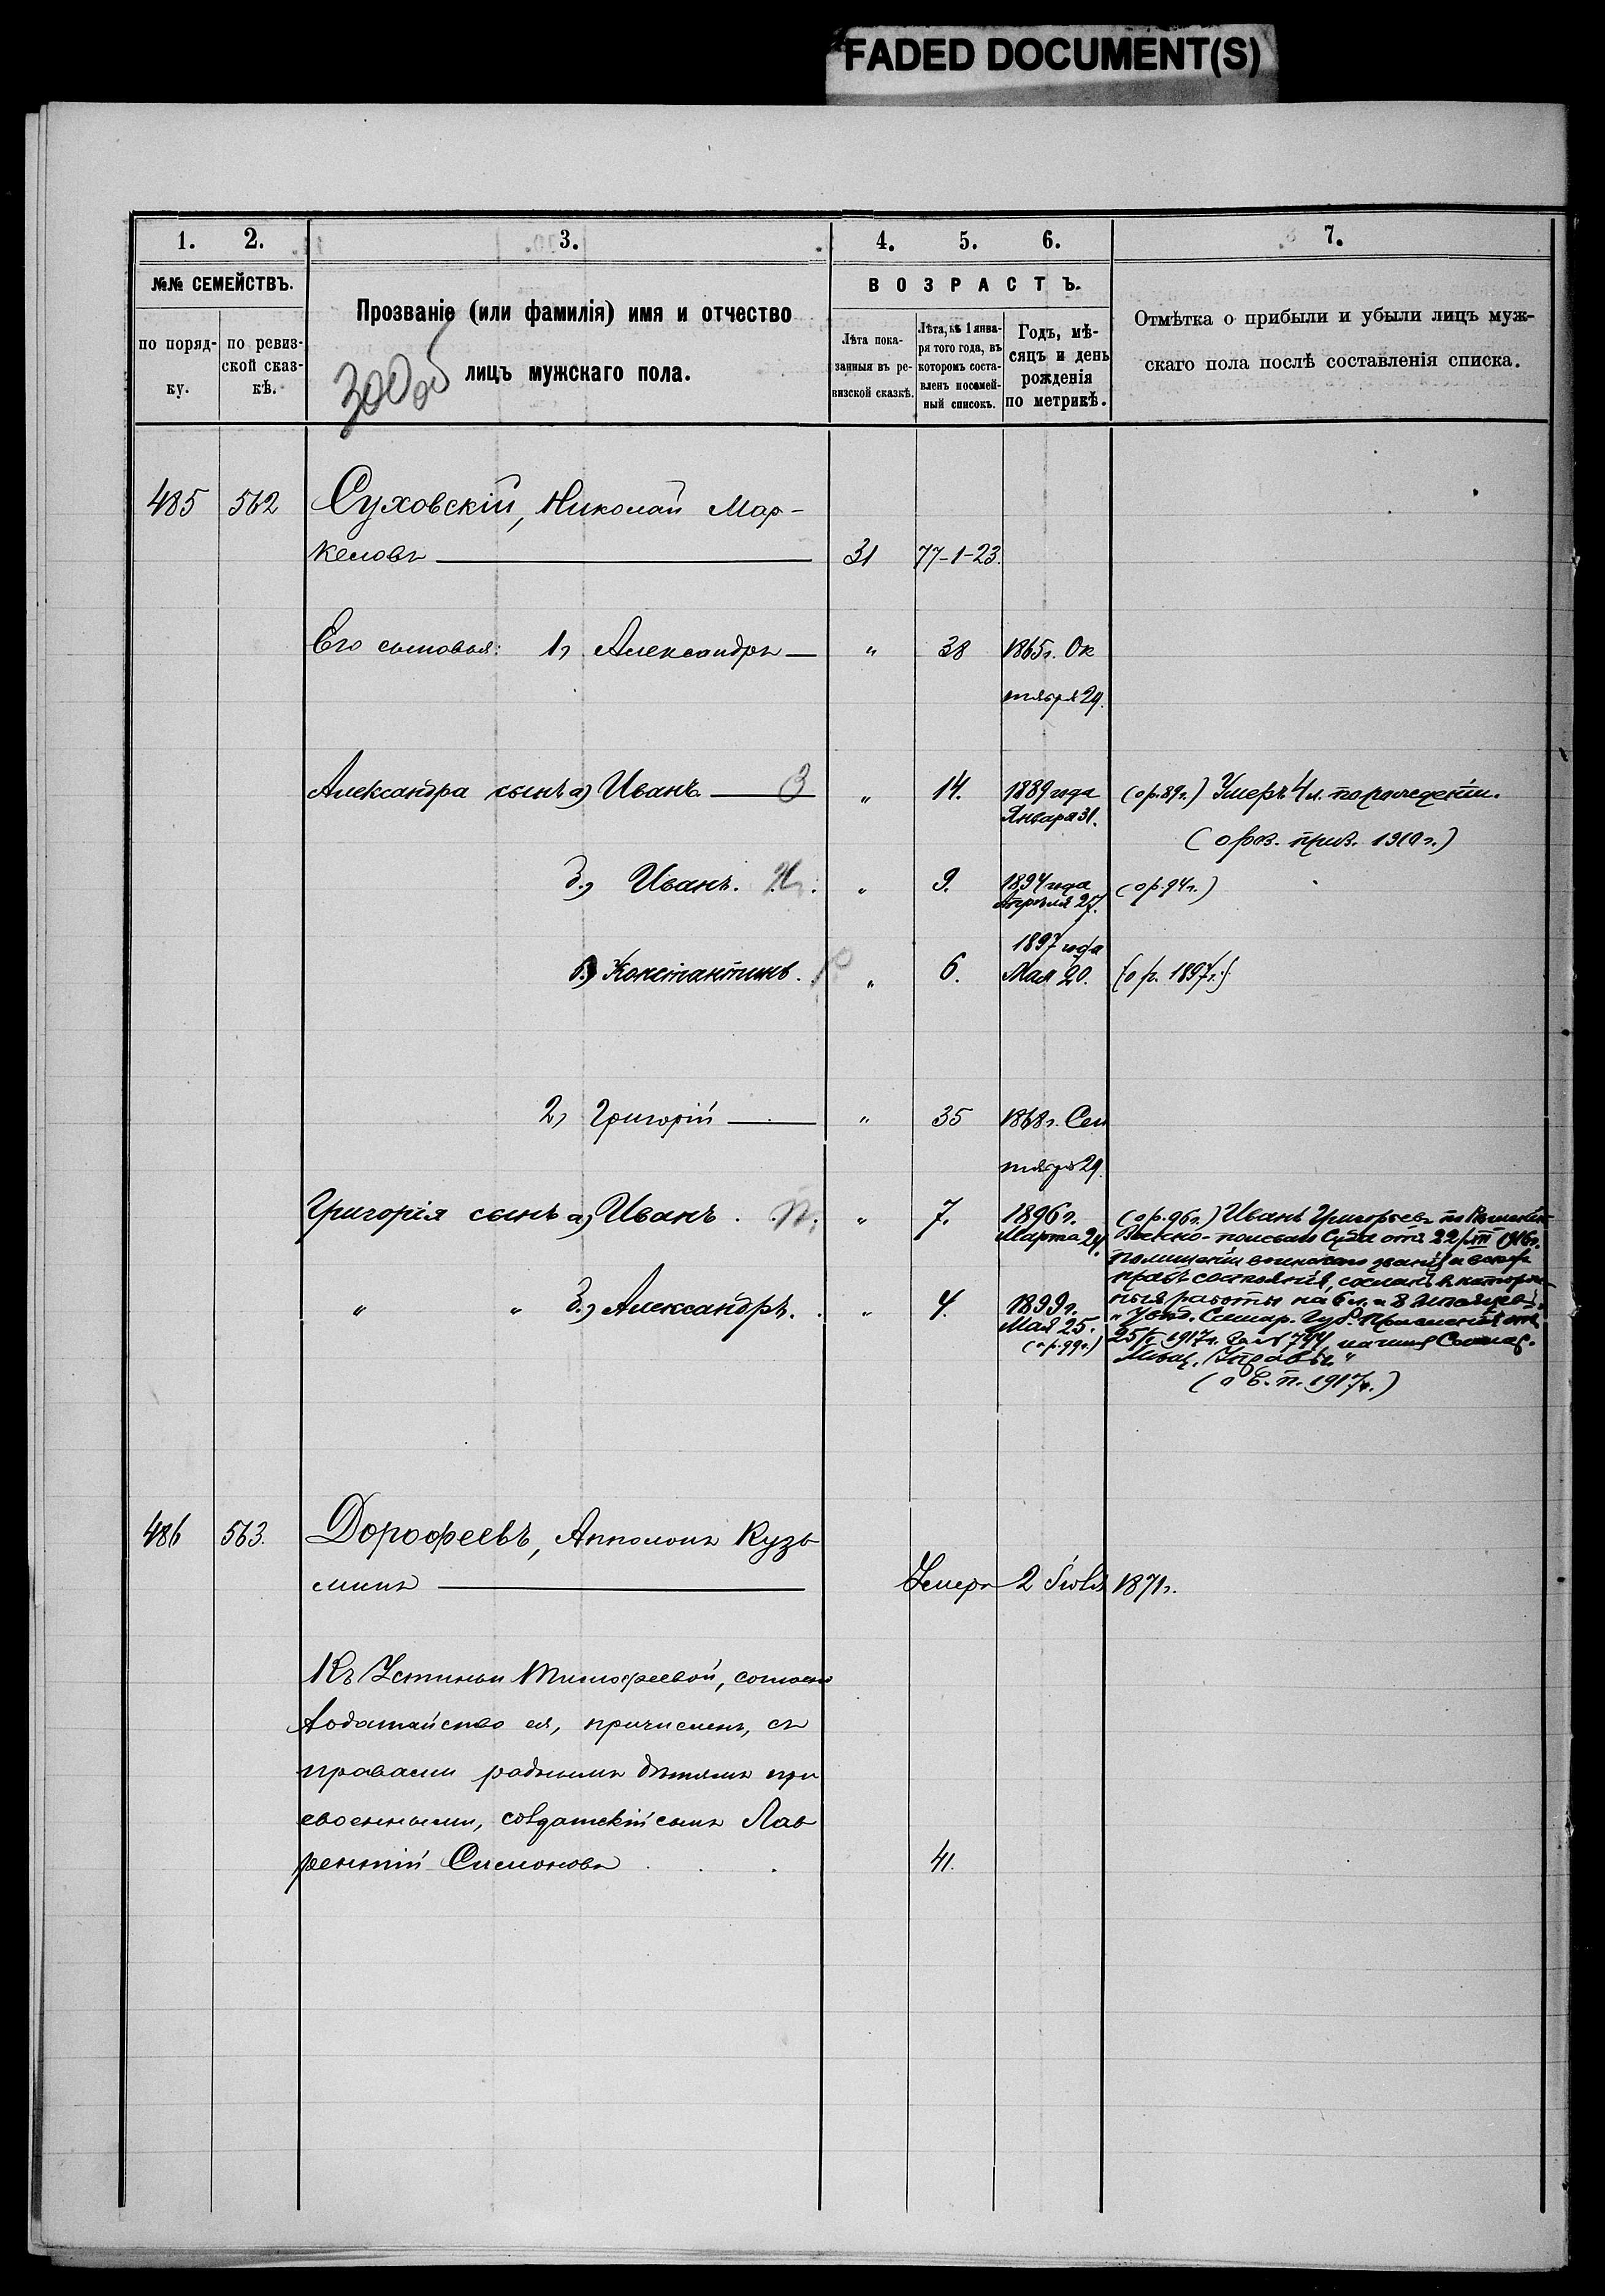 FADED DOCUMENT(S)
1. 2. 3. 4. 5. 6. 7.
№№ СЕМЕЙСТВЪ.
по поряд-
ку.
по ревиз-
ской сказ-
кѣ.
Прозваніе (или фамилія) имя и отчество
лицъ мужскаго пола.
300об
ВОЗРАСТЪ.
Лѣта пока-
занныя въ ре-
визской сказкѣ.
Лѣта, къ 1 янва-
ря того года, въ
которомъ соста-
вленъ посемей-
ный списокъ.
Годъ, мѣ-
сяцъ и день
рожденія
по метрикѣ.
Отмѣтка о прибыли и убыли лицъ муж-
скаго пола послѣ составленія списка.
485 562 Суховскій, Николай Мар-
келовъ 31 77-1-23.
Его сыновья: 1, Александръ „ 38 1865г. Ок
тября 29.
Александра сынъ а) Иванъ „ 14. 1889 года (о р. 89г.) Умеръ 4 л.
Января 31.
(о воз. приз. 1910 г.)
б.) Иванъ. „ 9. 1894 года (о р. 94г.)
Апрѣля 27.
1897 года
в) Константинъ. „ 6. Мая 20. (о р. 1897г.)
2, Григорій „ 35 1868г. Сен
тября 29.
Григорія сынъ а) Иванъ. „ 7. 1896г. (о р. 96г.) Иванъ Григорьевъ по
Марта 24. Военно-полеваго Суда отъ 22/III 1916г.
воинскаго званія и всѣхъ
правъ состоянія, сосланъ въ каторж-
„ „ б.) Александръ. „ 4. 1899г. ныя работы на 6 л. и 8 мѣсяцев.
Мая 25. „Увѣд. Самар. Губ. Правленія отъ
(о р. 99г.) 25/I 1917г. за № 744 на имя Самар.
Мѣщ. Управы."
(о в. п. 1917г.)
486 563. Дорофеевъ, Апполонъ Кузь
минъ Умеръ 2 Іюля 1871г.
Къ Устиньи Тимофеевой, согласно
ходатайство ея, причисленъ, съ
правами роднымъ дѣтямъ при
своенными, солдатскій сынъ Лав
рентій Симоновъ . . . 41.